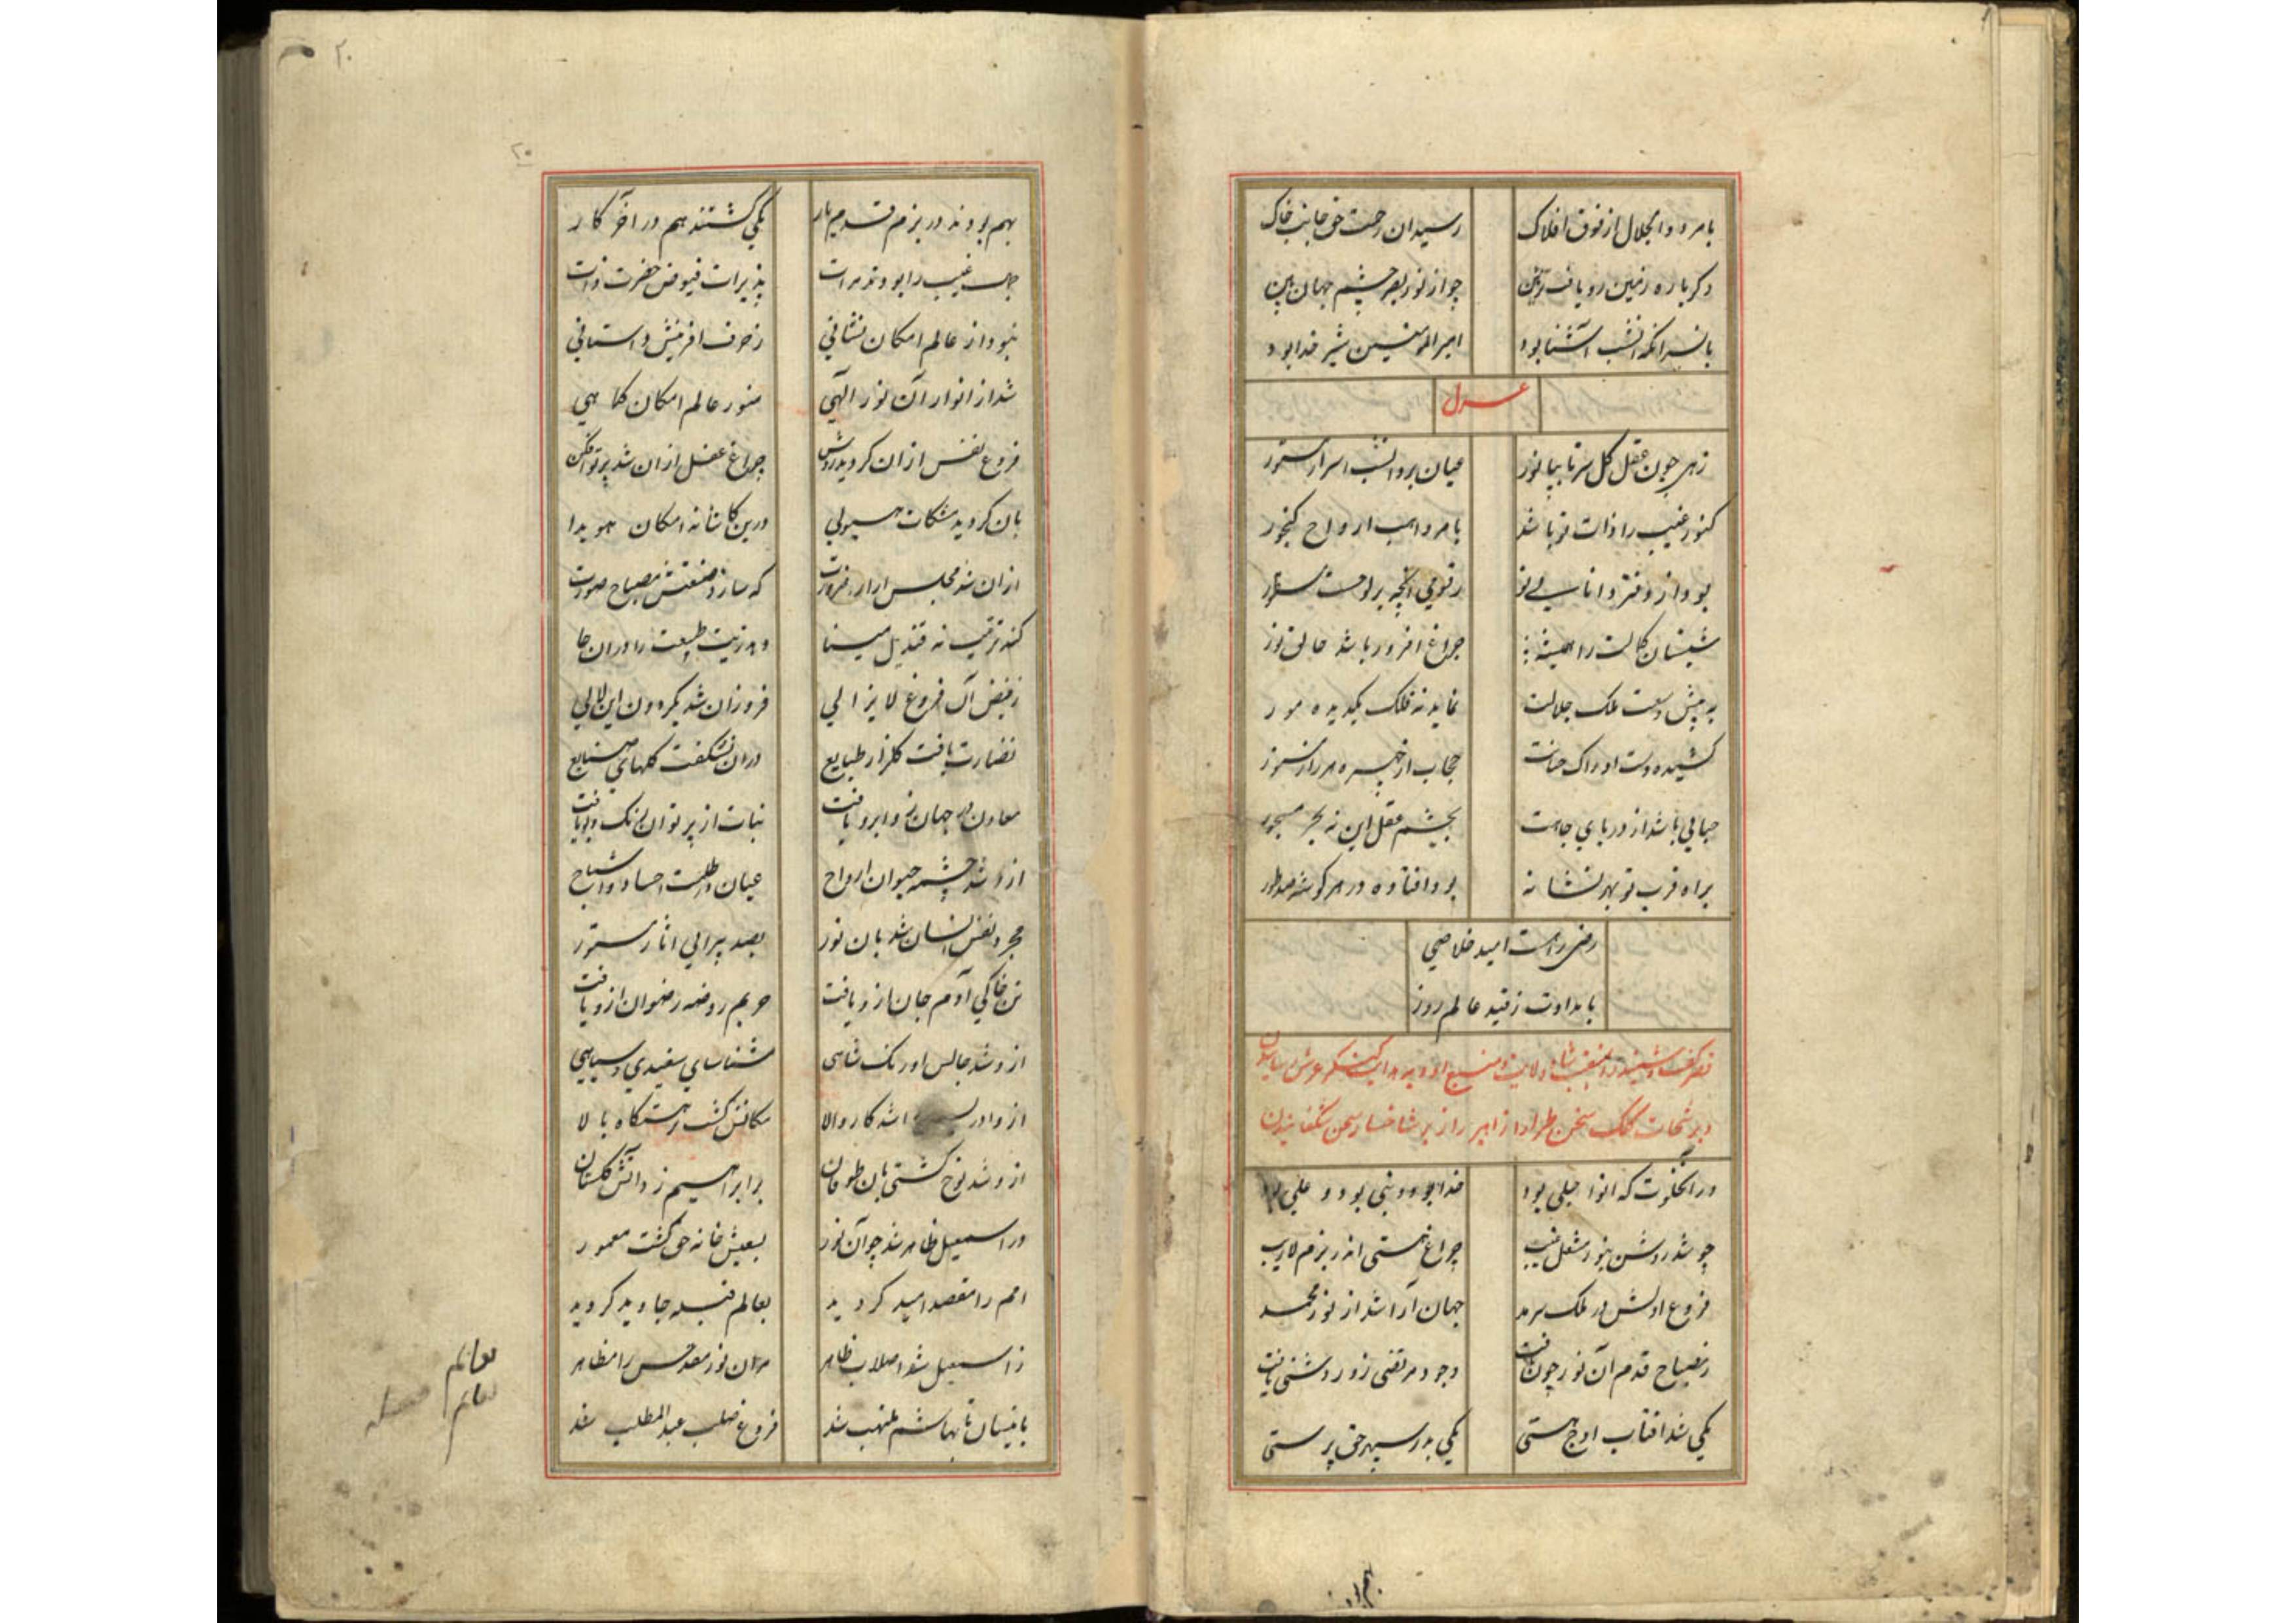 بامر ذوالجلال از فوق افلاک
رسید آن رحمت حق جانب خاک
دکر باره زمین رو یافت
چو از نور بصر چشم جهان بین
بانسر انکه انشب آشنا بود
امیر المومنین شیر خدا بود
غزل
زهی چون عقل کل سر تا بپا نور
عیان بر وانشب اسرار مستور
کنوز غیب را ذات تو باشد
بامر واهب ارواح کنجور
بود از دفتر دانایی تو
رقومی انچه بر لوحست مسطور
شبستان کمالت را همیشه
چراغ افروز باشد خالق نور
به پیش وسعت ملک جلالت
نماید نه فلک یکدیده مور
کشیده دست ادراک
حجاب از چهره هر راز مستور
حبابی باشد از دریای جاهت
بچشم عقل این نه بحر مسجور
براه قرب تو بهر نشانه
بود افتاده در هر کوشه صد طور
رضی راهست امید خلاصی
بامدادت ز قید عالم زور
شاه ولایت و منبع
سخن طراز ازاهیر راز بر شاخسار سخن شکفانیدن
در آنخلوت که انوار جلی بود
خدا بود و نبی بود و علی بود
چو شد روشن بنور مشعل غیب
چراغ هستی اندر بزم لاریب
فروغ اولش در ملک سرمد
جهان آرا شد از نور محمد
ز مصباح قدم آن نور چون تافت
وجود مرتضی زو روشنی یافت
یکی شد افتاب اوج هستی
یکی بدر سپهر حق پرستی
بهم بودند
بهم بودند در بزم قدم یار
یکی کشتند هم در آخر کار
جمال غیب را بودند مرات
پذیرات فیوض حضرت ذات
نبود از عالم امکان نشانی
ز حرف افرینش داستانی
شد از انوار آن نور الهی
منور عالم امکان کماهی
فروغ نفس ازان کردید روشن
چراغ عقل ازان شد پرتو افکن
بان کردید مشکات هیولی
درین کاشانه امکان هویدا
ازان شد مجلس ارا
که سازد صنعتش مصباح صورت
کند ترتیب نه قندیل مینا
دهد زیت طبیعت را دران جا
ز فیض آن فروغ لا یزالی
فروزان شد بکردون این لالی
نضارت یافت کلزار طبایع
دران بشکفت کلهای صنایع
معادن در جهان زو ابرو یافت
نبات از پرتو آن رنک و بو یافت
ازو شد چشمه حیوان ارواح
عیان در ظلمت اجساد و اشباح
مجرد نفس انسان شد بان نور
بصد پیرایی اثار مستور
تن خاکی آدم جان ازو یافت
حریم روضه رضوان ازو یافت
ازو شد جالس اورنک شاهی
شناسای سفیدی و سیاهی
ازو ادریس را شد کار والا
مکانش کشت رهستکاه بالا
ازو شد نوح کشتی بان طوفان
بر ابراهیم زو آتش کلستان
در اسمعیل ظاهر شد چو آن نور
بسعیش خانه حق کشت معمور
امم را مقصد امید کردید
بعالم قبله جاوید کردید
ز اسمعیل شد اصلاب ظاهر
مر ان نور مقدس را مظاهر
باینسان تا بهاشم ملتهب شد
فروغ صلب عبد المطلب شد
۲۰
۲۰